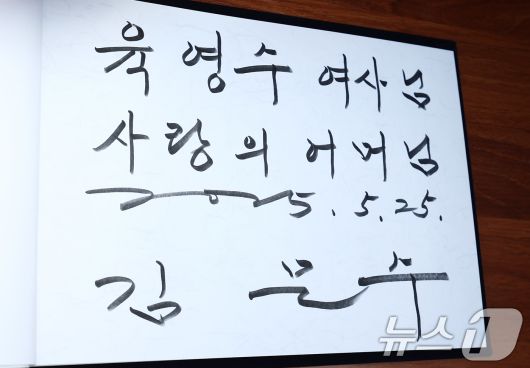 육영수 여사님
사랑의 어머님
2025. 5. 25.
김 문수
뉴스1